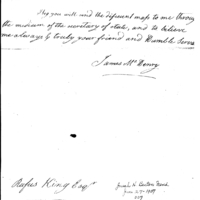 I beg you will send the different maps to me through
the medium of the secretary of state, and to believe
me always truly your friend and humble serv
James McHenry
Rufus King Esqr
Joseph H.
Jan 27-